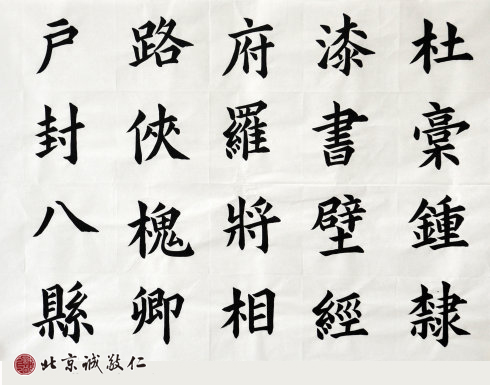 杜稾鍾隸
漆書壁經
府羅將相
路俠槐卿
戶封八縣
北京诚敬仁